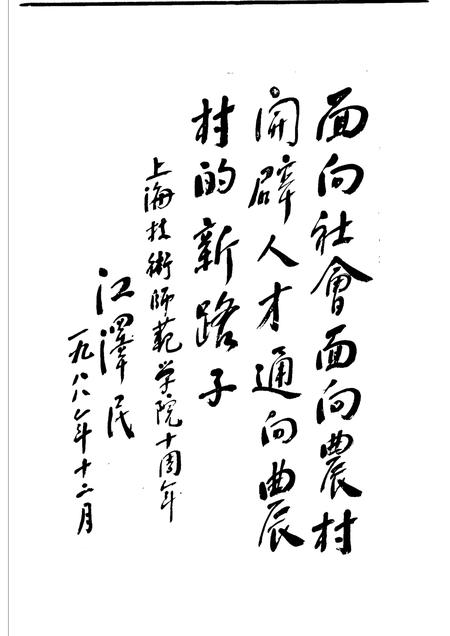 面向社會面向農村
開辟人才通向農
村的新路子
上海技術師範学院十周年
江澤民
一九八八年十二月